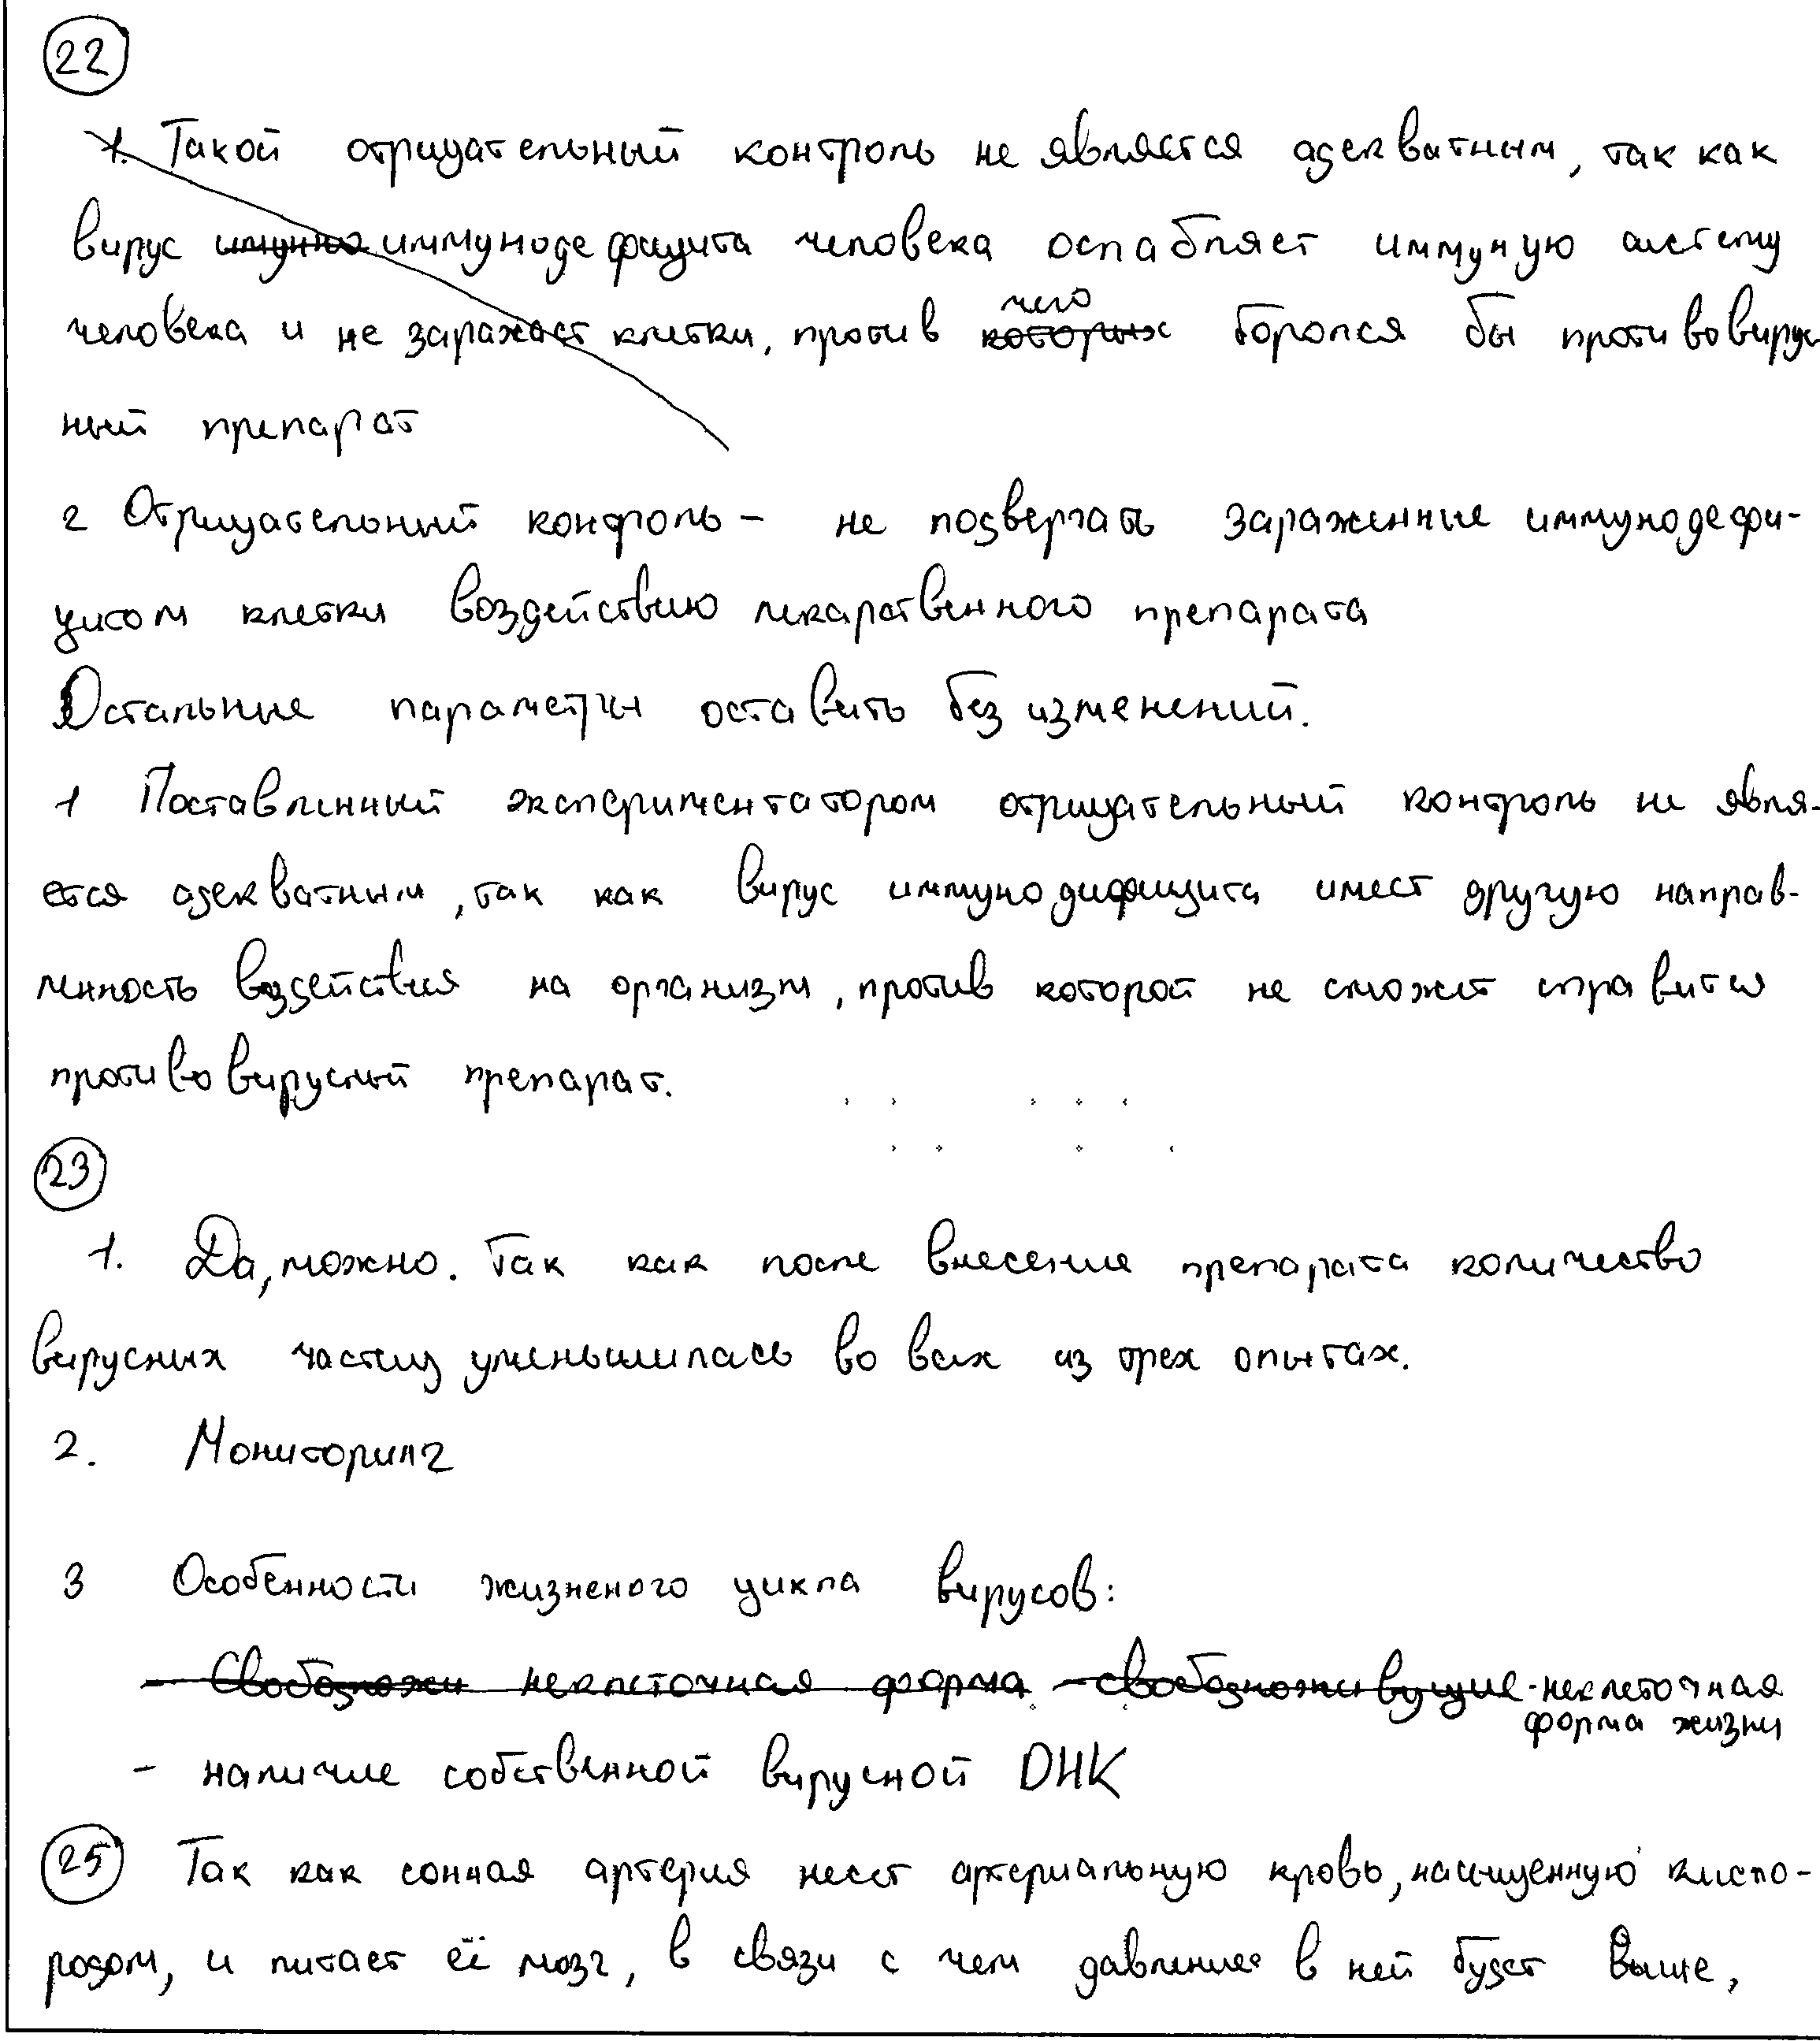 22
1. Такой отрицательный контроль не является адекватным, так как
вирус имунно иммунодефицита человека ослабляет иммуную систему
человека и не заражает клетки, против которых чего боролся бы противовирус
ный препарат
2 Отрицательный контроль - не подвергать зараженные иммунодефи-
цитом клетки воздействию лекарственного препарата
Остальные параметры оставить без изменений.
1 Поставленный экспериментатором отрицательный контроль не явля-
ется адекватным, так как вирус иммунодифицита имеет другую направ-
ленность воздействия на организм, против которой не сможет справится
противовирусный препарат.
23
1. Да, можно. Так как после внесения препарата количество
вирусных частиц уменьшилась во всех из трех опытах.
2. Мониторинг
3 Особенности жизненого цикла вирусов:
- Свободножи неклеточная форма - свободноживущие - неклеточная
форма жизни
- наличие собственной вирусной ДНК
25 Так как сонная артерия несет артериальную кровь, насыщенную кисло-
родом, и питает ей мозг, в связи с чем давление в ней будет выше,